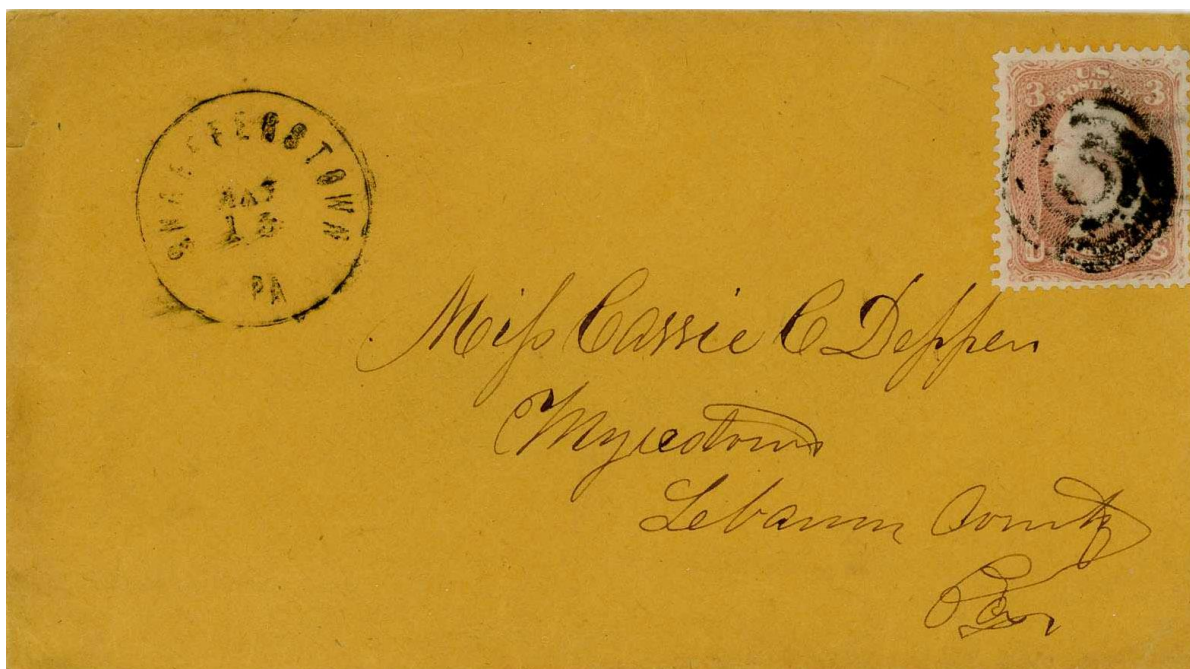 SHAEFFERSTOWN
MAY
PA
U.S.
3 POSTAGE 3
U S
Miss Cassie C Deppen
Myerstown
Lebanon County
Pa